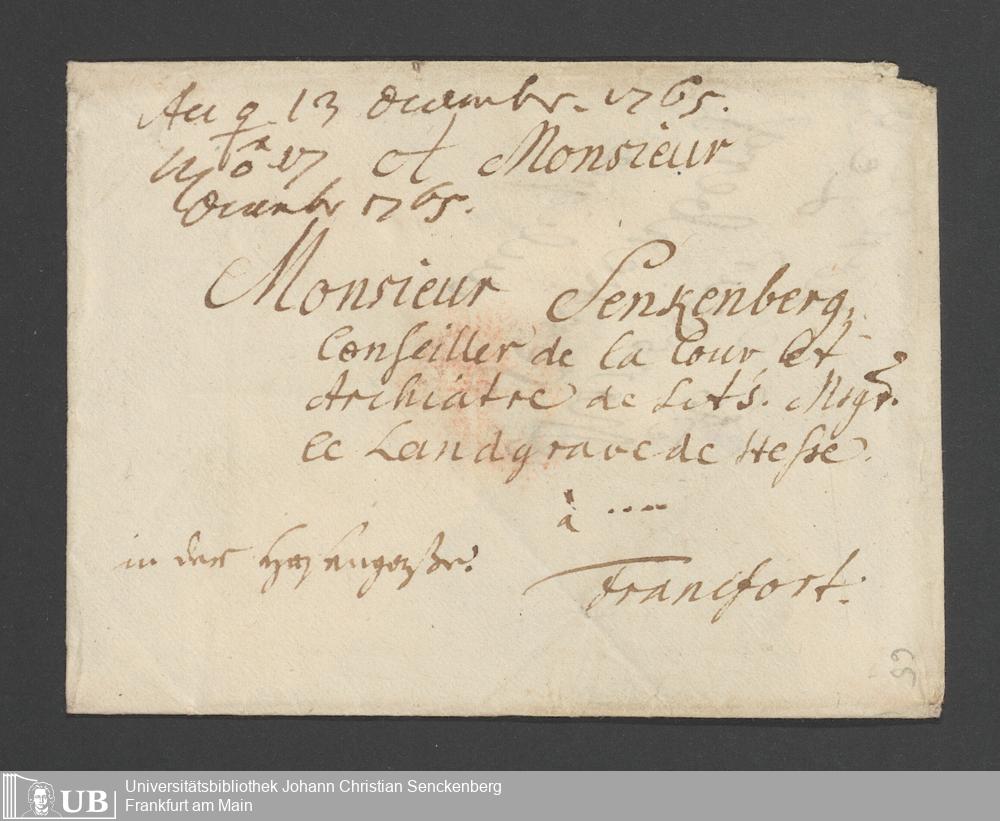 13 Decembr. 1765.
17 A Monsieur
Decembr 1765.
Monsieur Senkenberg,
Conseiller de la Cour, et
Archiàtre de S. A. S. Msgr.
le Landgrave de Hesse.
à ....
in der
Francfort.
Universitätsbibliothek Johann Christian Senckenberg
Frankfurt am Main
UB